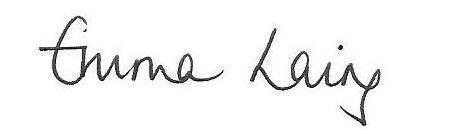 Emma Laing